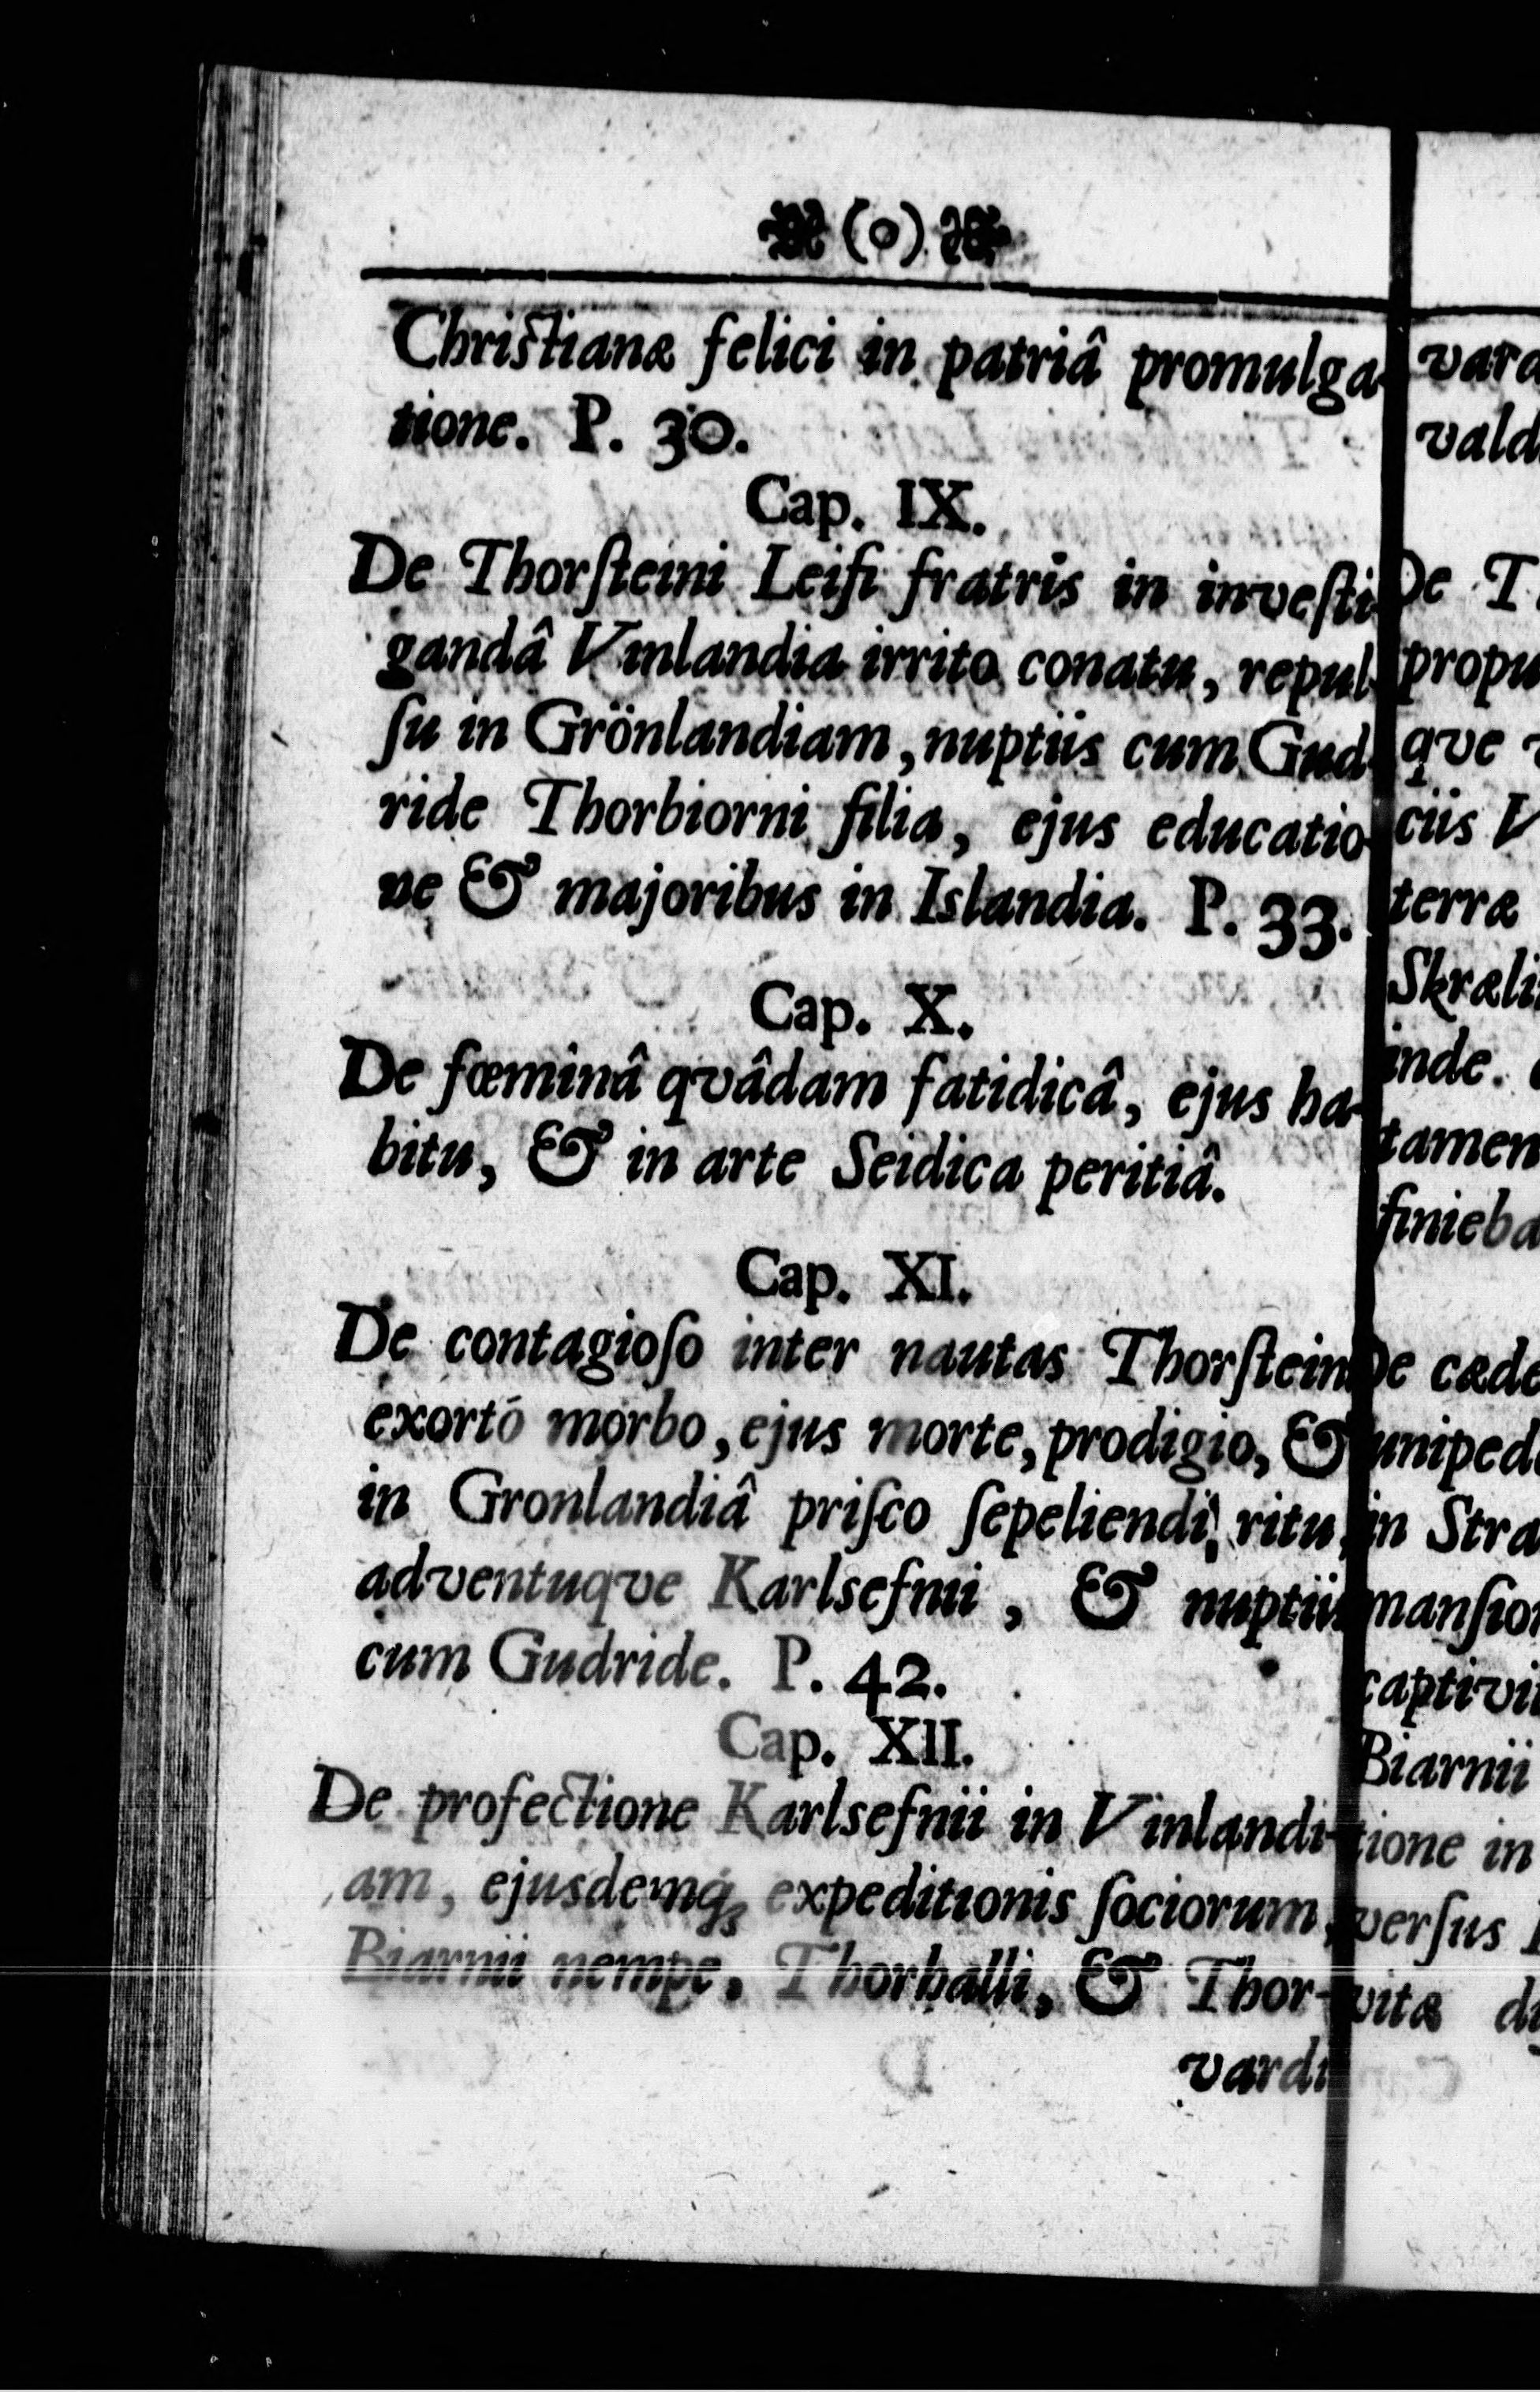 (o)
Christianæ felici in patriâ promulga-
tione. P. 30.
Cap. IX.
De Thorſteini Leifi fratris in inveſti-
gandâ Vinlandia irrito conatu, repul-
ſu in Grönlandiam, nuptiis cum Gud-
ride Thorbiorni filia, ejus educatio-
ne & majoribus in Islandia. P. 33.
Cap. X.
De fœminâ qvâdam fatidicâ, ejus ha-
bitu, & in arte Seidica peritiâ.
Cap. XI.
De contagioſo inter nautas Thorſtein
exortô morbo, ejus morte, prodigio, &
in Gronlandiâ priſco ſepeliendi, ritu,
adventuqve Karlsefnii, & nuptiis
cum Gudride. P. 42.
Cap. XII.
De profectione Karlsefnii in Vinlandi-
am, ejusdemq; expeditionis ſociorum,
Biarnii nempe, Thorhalli, & Thor-
vardi
De T
propu
qve
ciis V
terræ
Skræli
inde.
tamen
finieba
De cæde
uniped
in Stra
manſion
captivi
Biarnii
tione in
verſus
vitæ